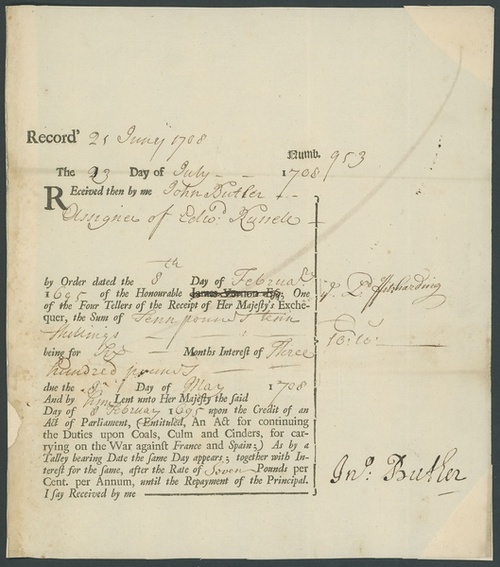 Record' 21 June 1708
Numb. 953
The 23 Day of July 1708
Received then by me John Butler
Assignee of Edwd. Russell
by Order dated the 8th Day of February
169 of the Honourable James Vernon Esq; One
of the Four Tellers of the Receipt of Her Majesty's Exche-
quer, the Sum of Tenn pounds tenn
shillings
being for Six Months Interest of Three
hundred pounds
due the 8 Day of May 1708
And by him Lent unto Her Majesty the said
Day of 8 February 169 upon the Credit of an
Act of Parliament, (Entituled, An Act for continuing
the Duties upon Coals, Culm and Cinders, for car-
rying on the War against France and Spain;) As by a
Talley bearing Date the same Day appears; together with In-
terest for the same, after the Rate of Seven Pounds per
Cent. per Annum, until the Repayment of the Principal.
I say Received by me
10:10:
Jno. Butler